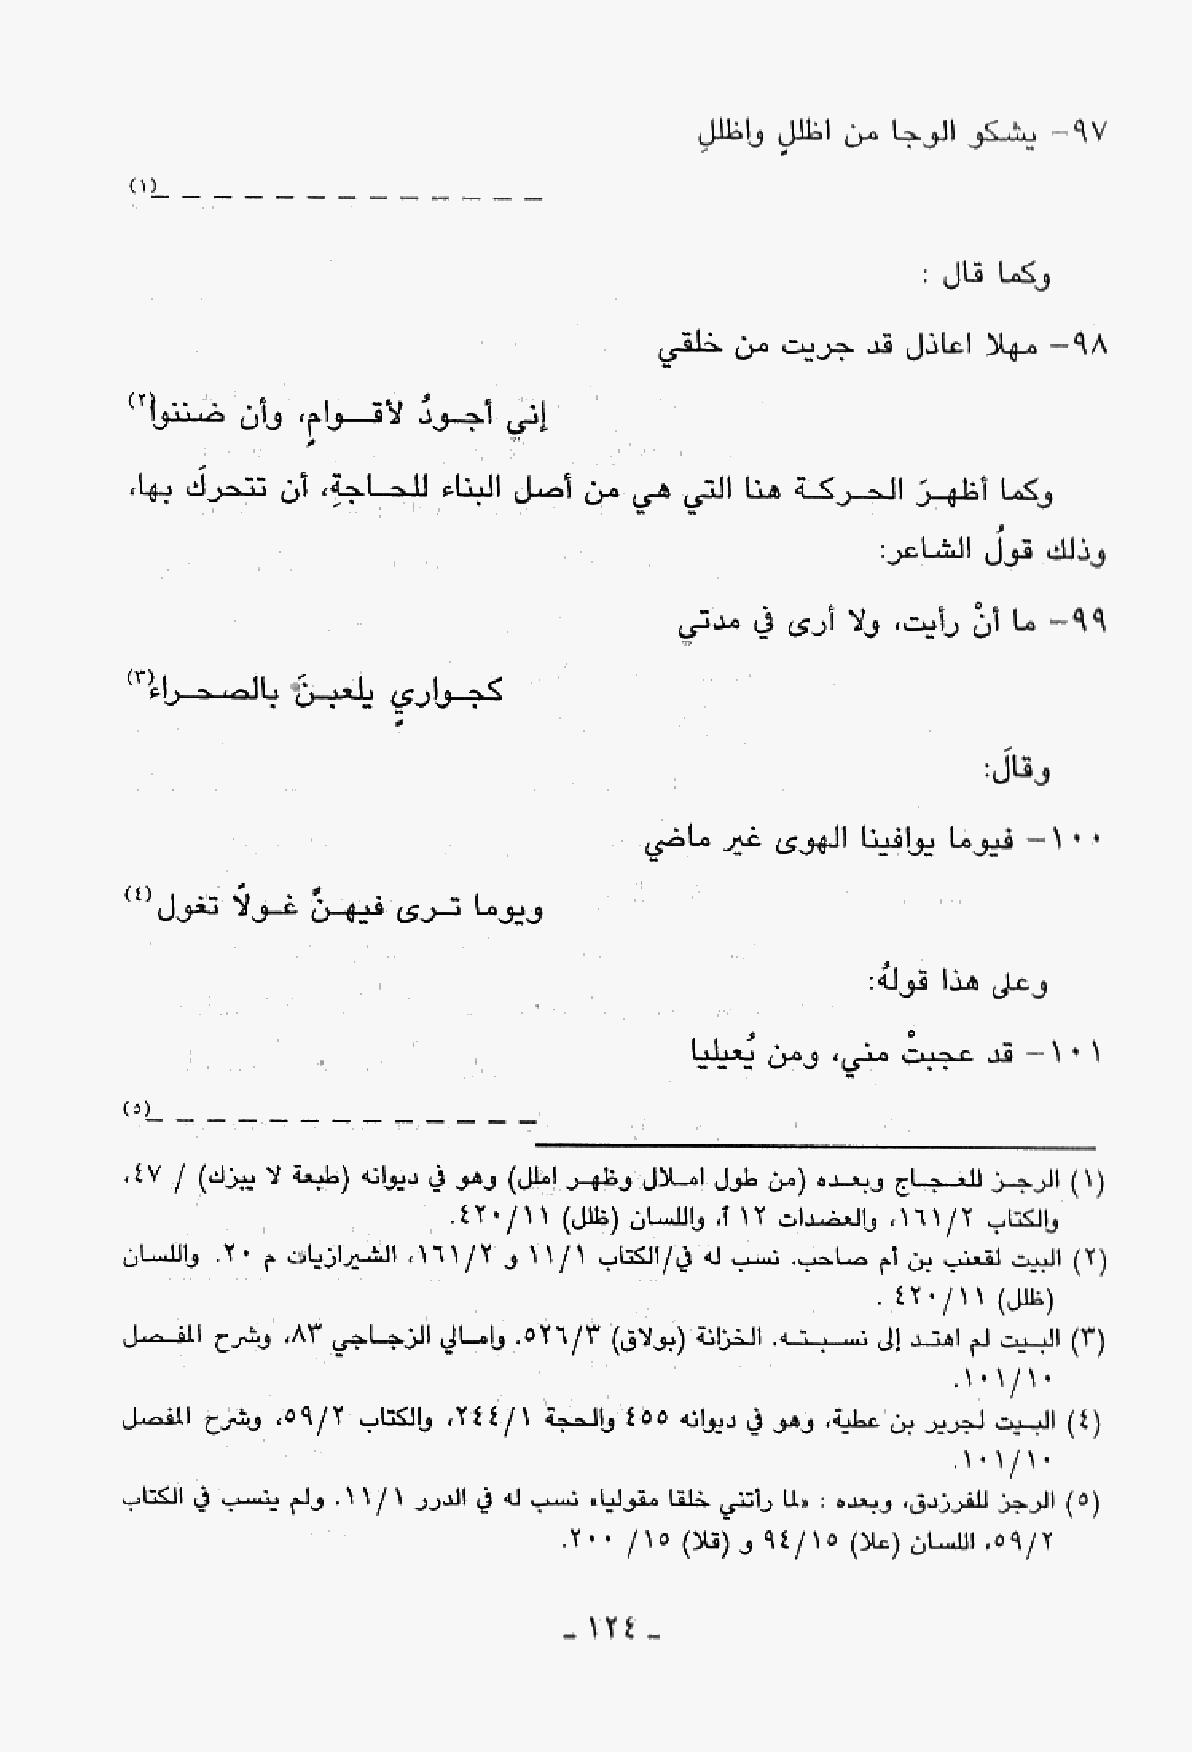 ٩٧- يشكو الوجا من اظللٍ واظللِ
_ _ _ _ _ _ _ _ _ _ _ _ _ (١)
وكما قال :
٩٨- مهلا اعاذل قد جريت من خلقي
إني أجودُ لأقوامٍ، وأن ضننوا(٢)
وكما أظهرَ الحركة هنا التي هي من أصل البناء للحاجةِ، أن تتحركَ بها،
وذلك قولُ الشاعر:
٩٩- ما أنْ رأيت، ولا أرى في مدتي
كجواريٍ يلعبنَ بالصحراء(٣)
وقالَ:
١٠٠- فيوما يوافينا الهوى غير ماضي
ويوما ترى فيهنَّ غولاً تغول(٤)
وعلى هذا قولهُ:
١٠١- قد عجبتْ مني، ومن يُعيليا
_ _ _ _ _ _ _ _ _ _ _ _ _ (٥)
(١) الرجز للعجاج وبعده (من طول املال وظهر املل) وهو في ديوانه (طبعة لا يبزك) / ٤٧،
والكتاب ١٦١/٢، والعضدات ١٢ أ، واللسان (ظلل) ٤٢٠/١١.
(٢) البيت لقعنب بن أم صاحب. نسب له في/الكتاب ١١/١ و ١٦١/٢، الشيرازيات م ٢٠. واللسان
(ظلل) ٤٢٠/١١ .
(٣) البيت لم اهتد إلى نسبته. الخزانة (بولاق) ٥٢٦/٣. وامالي الزجاجي ٨٣، وشرح المفصل
١٠١/١٠.
(٤) البيت لجرير بن عطية، وهو في ديوانه ٤٥٥ والحجة ٢٤٤/١، والكتاب ٥٩/٢، وشرح المفصل
١٠١/١٠.
(٥) الرجز للفرزدق، وبعده : «لما رأتني خلقا مقوليا» نسب له في الدرر ١١/١. ولم ينسب في الكتاب
٥٩/٢، اللسان (علا) ٩٤/١٥ و (قلا) ١٥/ ٢٠٠.
_ ١٢٤ _